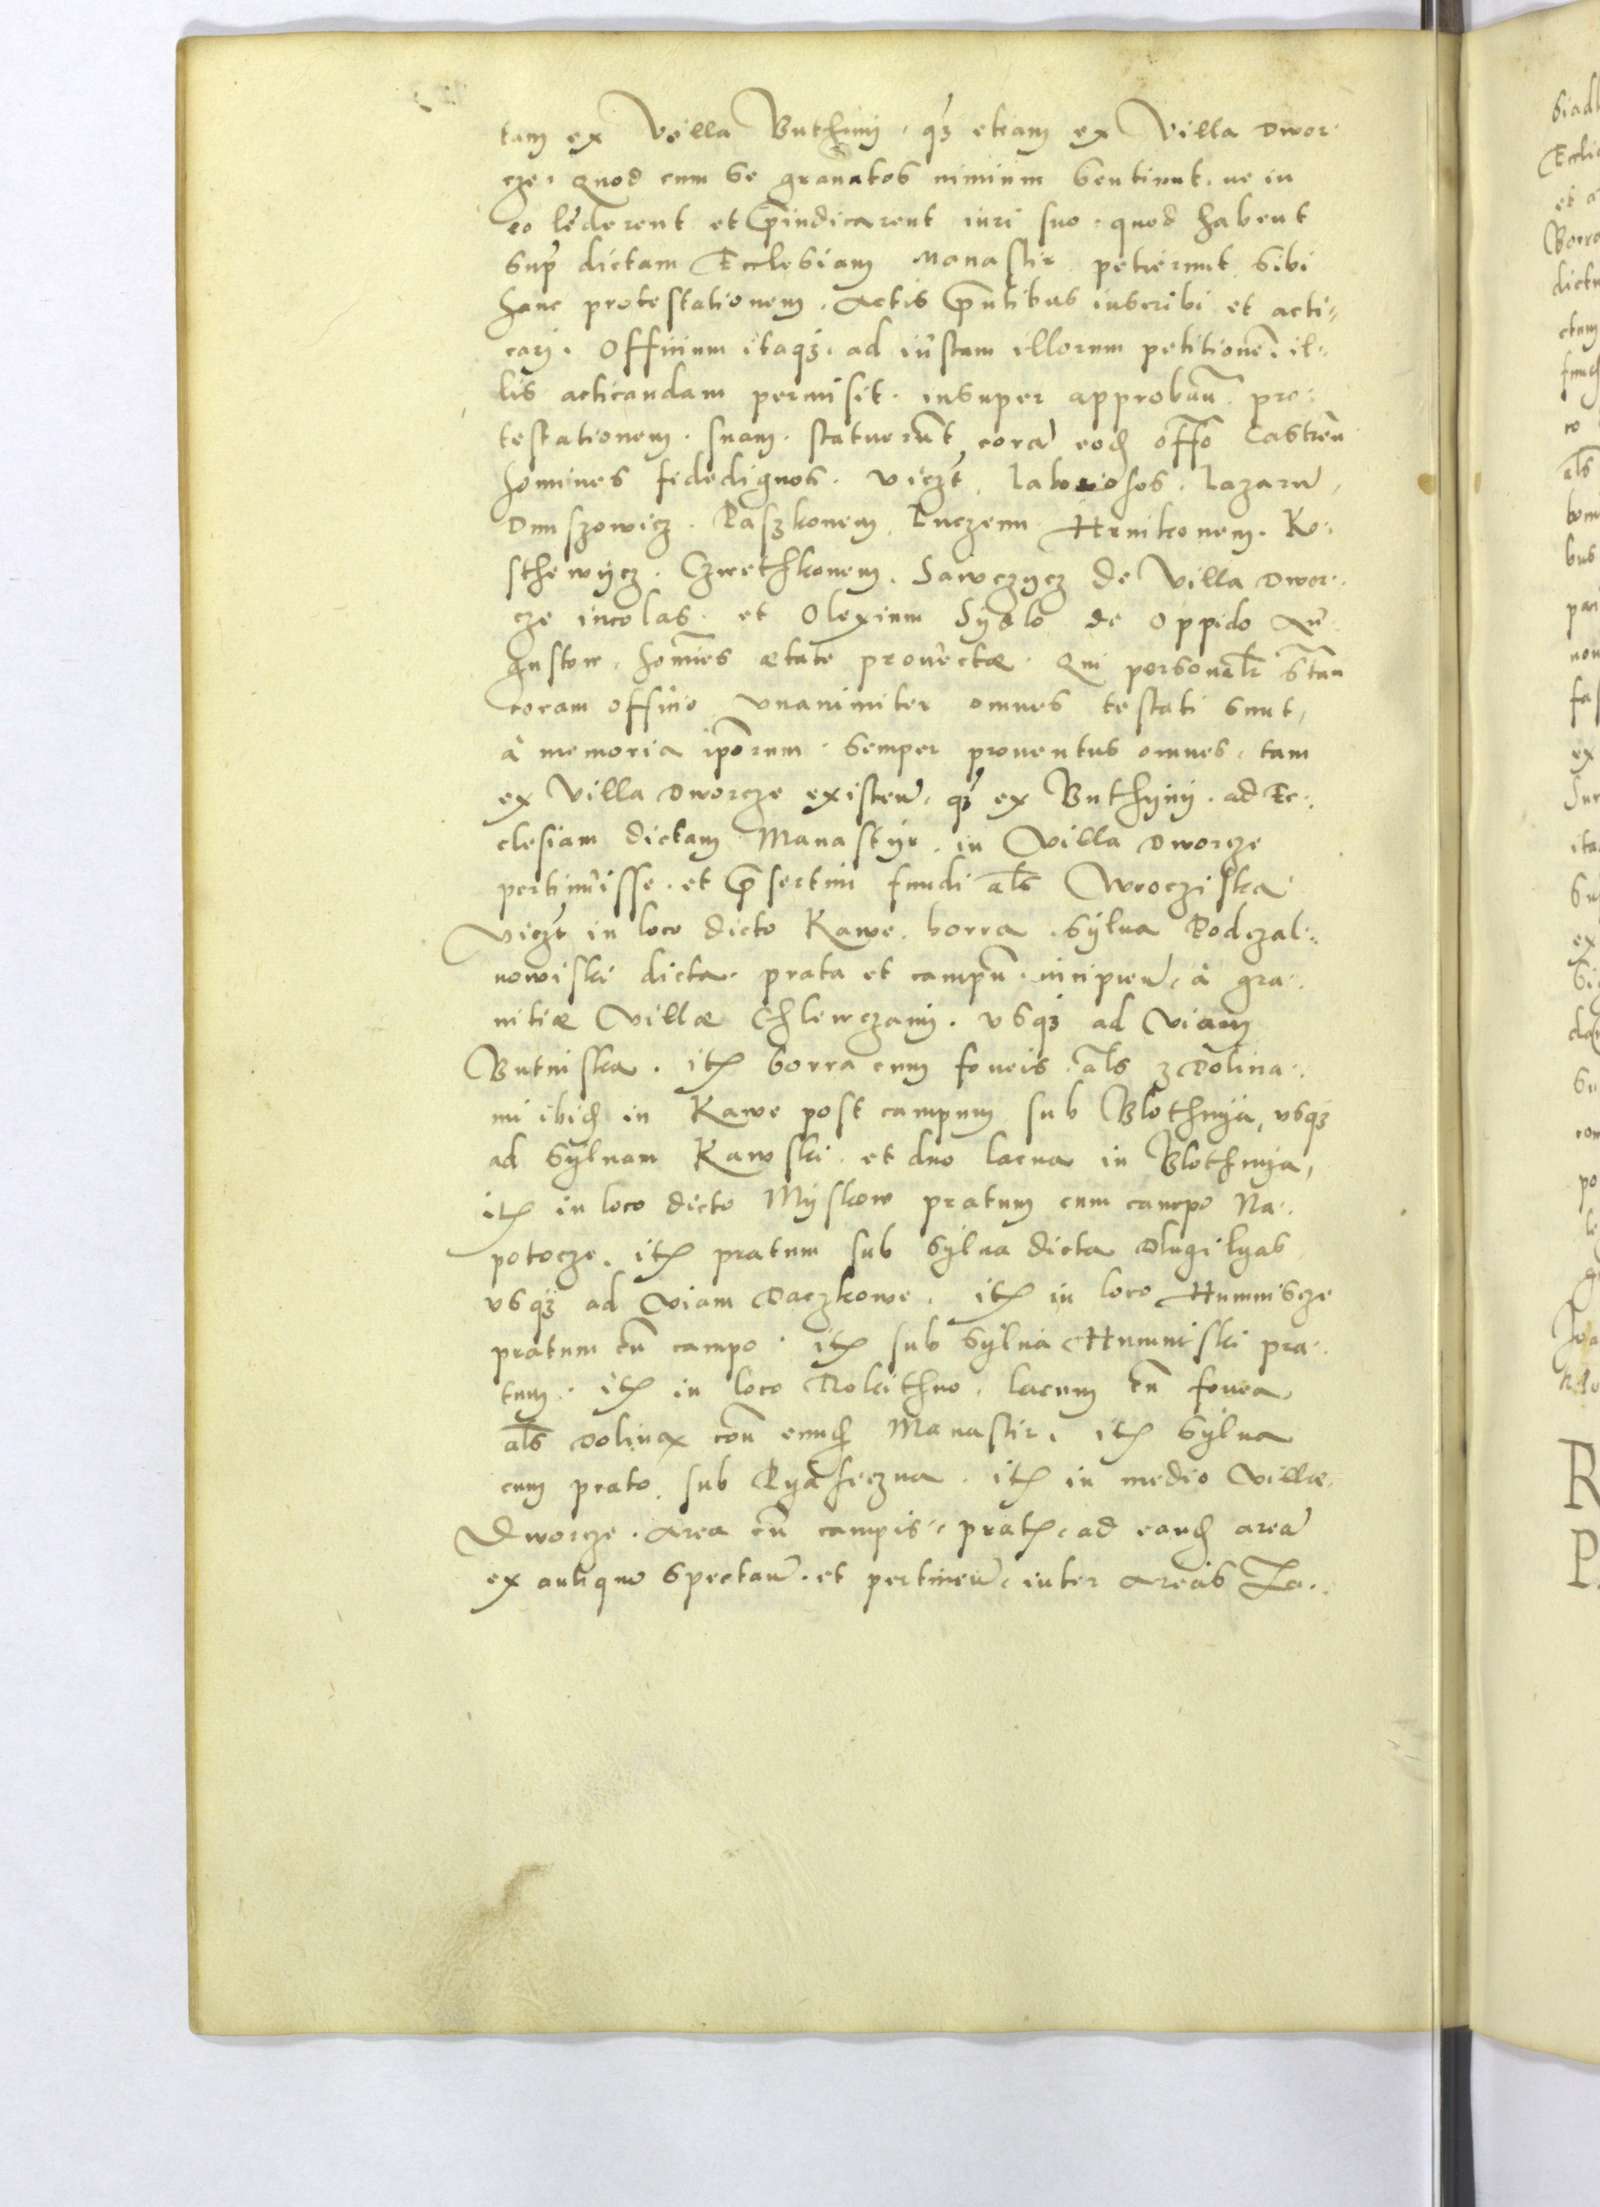 tam ex Villa Buthinij, qȝ etiam ex Villa Dwor-
cze. Quod cum se grauatos nimium sentirent, ne in
eo lederent et p̄iudicarent iuri suo, quod habent
sup dictam Ecclesiam Manastir petierunt sibi
hanc protestationem, Actis p̄ntibus inscribi et acti-
cari. Officium itaqȝ, ad iustam illorum petitionē, il-
lis acticandam permisit. insuper approbaū pro-
testationem suam, statuerūt corā eodꝫ offo Castreū
homines fidedignos, viczt, laboriosos, Lazarū,
Duuszowicz, Paszkonem Puczenu Hrinkonem, Ko-
sthewycz, Czwethkonem, Sawczycz de Villa Dwor-
cze incolas, et Olexium Sydlo de Oppido Au-
gustow, hoīnes ætate prouectæ. Qui personalr stan
coram officio vnanimiter omnes testati sunt,
à memoria ip̄orum, semper prouentus omnes, tam
ex Villa Dworcze existeū, qȝ ex Buthynij, ad Ec-
clesiam dictam Manastyr, in Villa Dworcze
pertinuisse, et p̄sertim fundi al̄s Wroczyska
viczt in loco dicto Kawe, borra, sylua Podczal-
nowiski dicta, prata et campū incipieū, à gra-
nitiæ Villæ Chlewczany, vsqȝ ad Viam
Butniska. itꝫ borra cum foueis al̄s z Dolina-
mi ibidꝫ in Kawe post campum sub Blothnya, vsqȝ
ad syluam Kawski, et duo lacua in Blothnya,
itꝫ in loco dicto Myskow pratum cum campo Na-
potocze, itꝫ pratum sub sylua dicta Dlugilyas
vsqȝ ad Viam Daczkowe. itꝫ in loco Humnisze
pratum cū campo. itꝫ sub sylua Humniski pra-
tum. itꝫ in loco Rokithno, lacum cū fouea,
al̄s Dolina coū eundꝫ Manastir, itꝫ sylua
cum prato sub Ryasseczna. itꝫ in medio Villæ
Dworcze, Area cū campis, pratꝫ, ad eandꝫ areā
ex antiquo spectaū, et pertineū, inter Areas La-